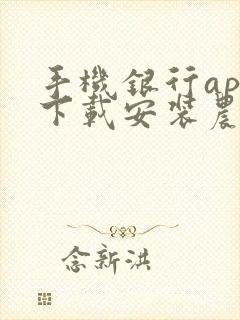 手機銀行ap
下載安裝農
念新洪